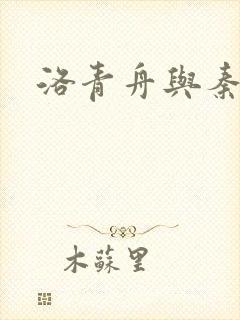 洛青舟與秦
木蘇里